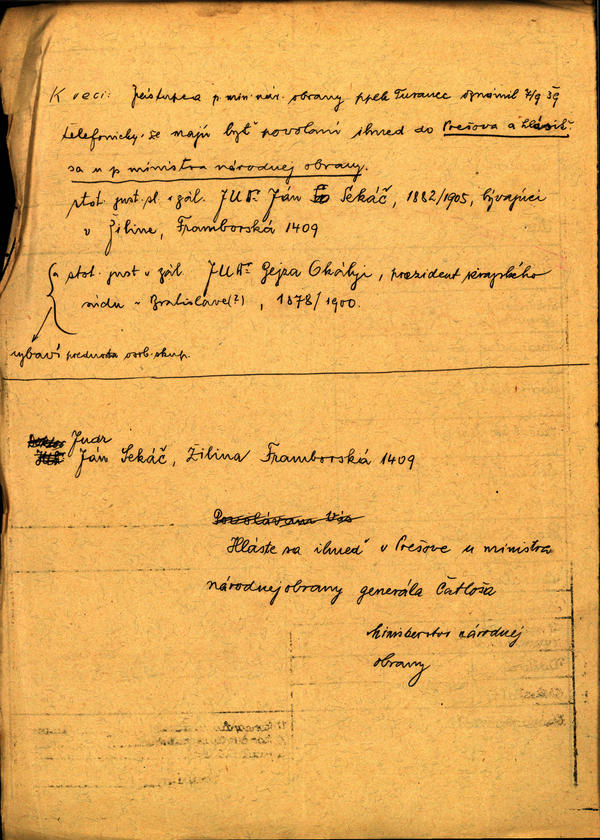 K veci: Zástupca p. min. nár. obrany pplk Turanec oznámil 7/9 39
telefonicky, že majú byť povolaní ihneď do Prešova a hlásiť
sa u p ministra národnej obrany.
stot. just. sl. v zál. JUDr. Ján Sekáč, 1882/1905, bývajúci
v Žiline, Framborská 1409
a stot. just v zál. JUDr Gejza Okályi, prezident krajského
súdu v Bratislave(?), 1878/1900.
vybaví prednosta osob. skup.
Judr
Ján Sekáč, Žilina Framborská 1409
Povolávame Vás
Hláste sa ihneď v Prešove u ministra
národnej obrany generála Čatloša
Ministerstvo národnej
obrany